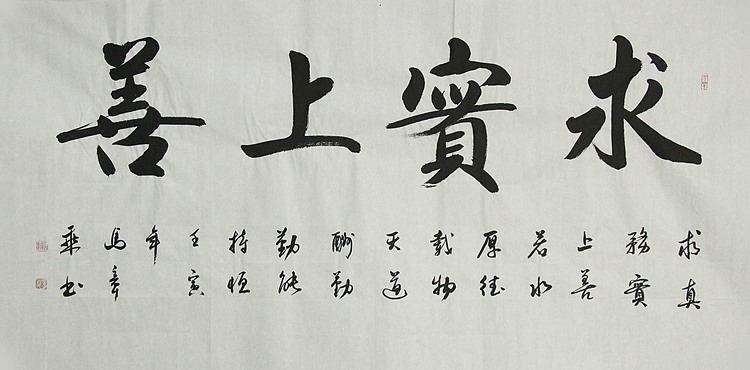 求實上善
求真
務實
上善
若水
厚德
載物
天道
酬勤
勤能
持恒
壬寅
年
馬章
乘书